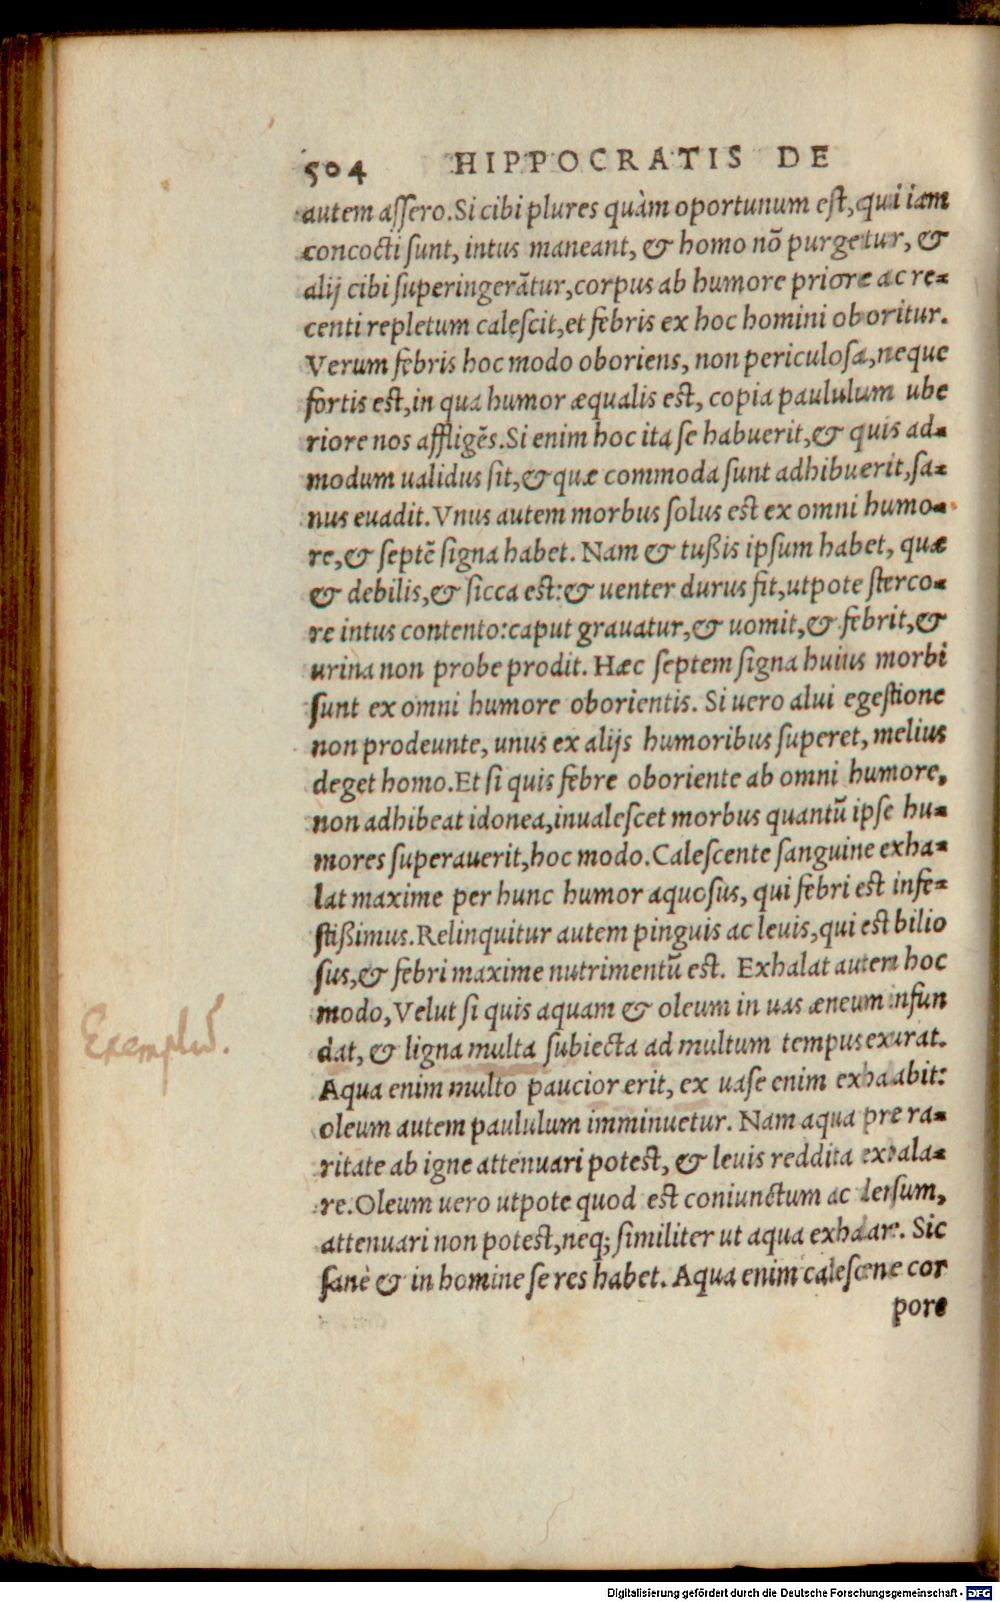 504 HIPPOCRATIS DE
autem aſſero. Si cibi plures quàm oportunum eſt, qui iam
concocti ſunt, intus maneant, & homo nō purgetur, &
alij cibi ſuperingerātur, corpus ab humore priore ac re-
centi repletum caleſcit, et febris ex hoc homini oboritur.
Verum febris hoc modo oboriens, non periculoſa, neque
fortis eſt, in qua humor æqualis eſt, copia paululum ube
riore nos affligēs. Si enim hoc ita ſe habuerit, & quis ad-
modum ualidus ſit, & quæ commoda ſunt adhibuerit, ſa-
nus euadit. Vnus autem morbus ſolus eſt ex omni humo-
re, & ſeptē ſigna habet. Nam & tußis ipſum habet, quæ
& debilis, & ſicca eſt: & uenter durus fit, utpote ſterco-
re intus contento: caput grauatur, & uomit, & febrit, &
urina non probe prodit. Hæc ſeptem ſigna huius morbi
ſunt ex omni humore oborientis. Si uero alui egeſtione
non prodeunte, unus ex alijs humoribus ſuperet, melius
deget homo. Et ſi quis febre oboriente ab omni humore,
non adhibeat idonea, inualeſcet morbus quantū ipſe hu-
mores ſuperauerit, hoc modo. Caleſcente ſanguine exha-
lat maxime per hunc humor aquoſus, qui febri eſt infe-
ſtißimus. Relinquitur autem pinguis ac leuis, qui eſt bilio
ſus, & febri maxime nutrimentū eſt. Exhalat autem hoc
modo, Velut ſi quis aquam & oleum in uas æneum infun
Exemplū.
dat, & ligna multa ſubiecta ad multum tempus exurat.
Aqua enim multo paucior erit, ex uaſe enim exhalabit:
oleum autem paululum imminuetur. Nam aqua præ ra-
ritate ab igne attenuari poteſt, & leuis reddita exhala-
re. Oleum uero utpote quod eſt coniunctum ac denſum,
attenuari non poteſt, neq; ſimiliter ut aqua exhalare. Sic
ſanè & in homine ſe res habet. Aqua enim caleſcente cor
pore
Digitalisierung gefördert durch die Deutsche Forschungsgemeinschaft - DFG